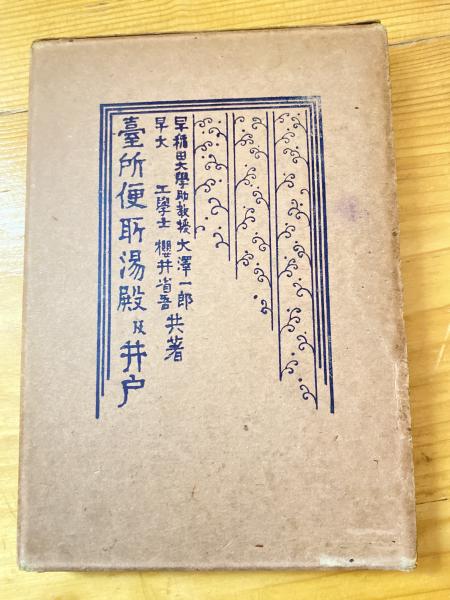 早稲田大學助教授 大澤一郎
早大 工學士 櫻井省吾 共著
臺所便所湯殿及井戸